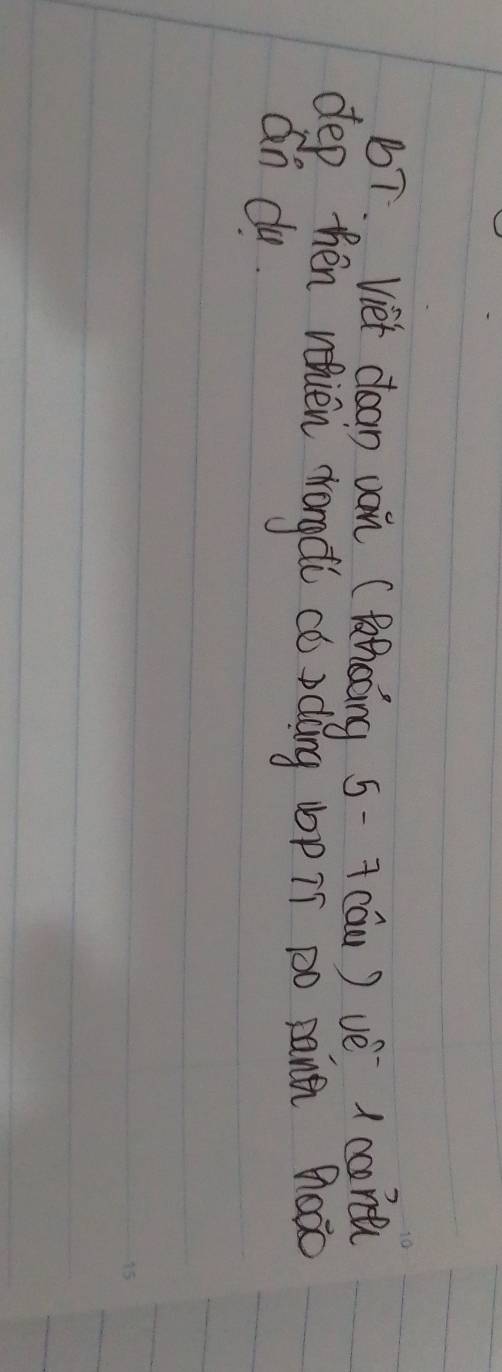 BT. Viết đoạn văn (khoảng 5-7 câu) về 1 cảnh
đẹp thiên nhiên trong đó có sdụng BPTT so sánh hoặc
ẩn dụ.
10
15